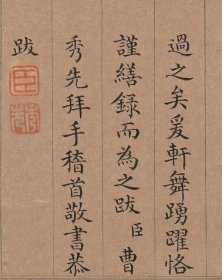 過之矣爰軒舞踴躍恪
謹繕錄而為之跋臣曹
秀先拜手稽首敬書恭
跋